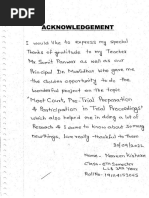 ACKNOWLEDGEMENT
I would like to express my special
Thanks of gratitude to my Teacher
Mr Sumit Panwar as well as our
Principal Dr. who gave me
the opportunity to do the
wonderful project on the topic
"Moot Court, Pre-Trial Preparation
& Participation in Trial Proceedings"
which also helped me in doing a lot of
Research & I came to know about so many
new things, I am really thankful to them.
Name -
Class -
Roll No. -